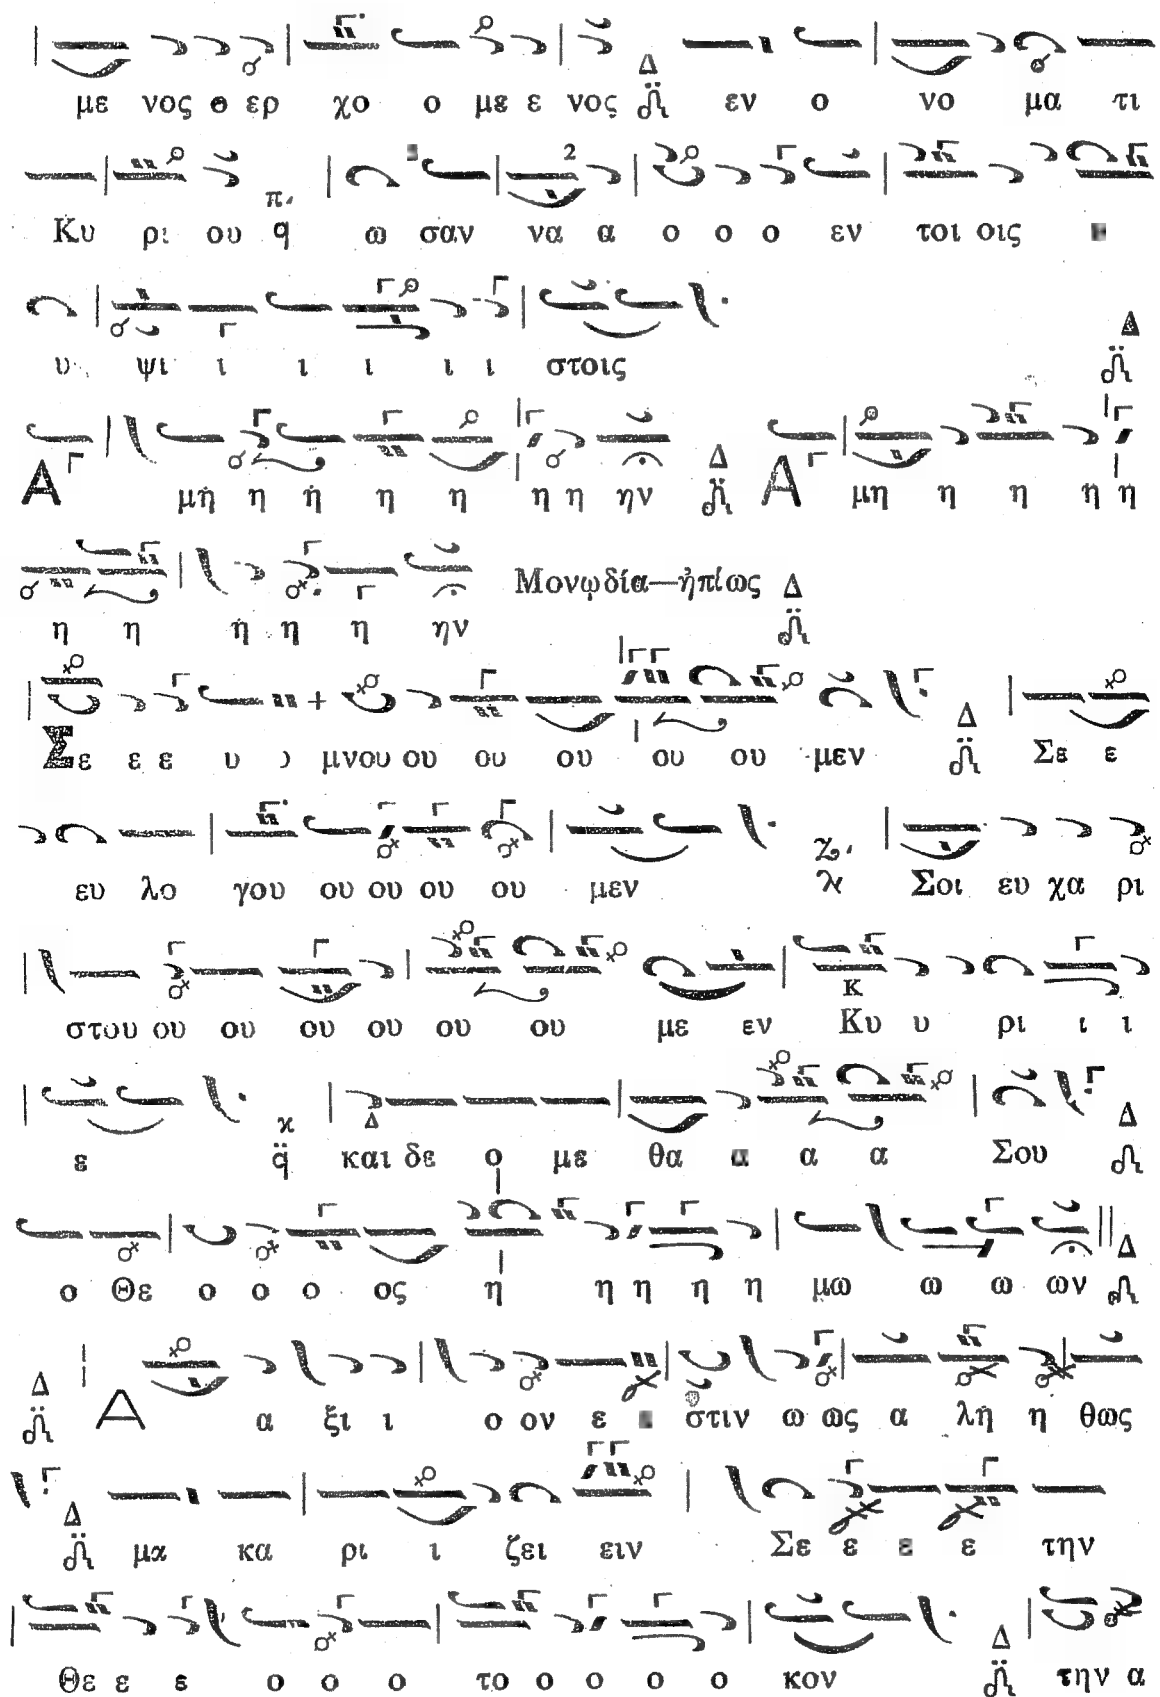 με νος ο ερ χο ο με ε νος Δ εν ο νο μα τι
Κυ ρι ου π q ω σαν να α ο ο ο εν τοι οις
υ ψι ι ι ι ι ι στοις Δ
Α μη η η η η η η ην Δ Α μη η η η η
η η η η η ην Μονῳδία—ἠπίως Δ
Σε ε ε υ υ μνου ου ου ου ου ου μεν Δ Σε ε
ευ λο γου ου ου ου ου μεν Ζ Σοι ευ χα ρι
στου ου ου ου ου ου ου με εν Κυ υ ρι ι ι
ε κ q και δε ο με θα α α α Σου Δ
ο Θε ο ο ο ος η η η η η μω ω ω ων Δ
Δ Α α ξι ι ο ον ε στιν ω ως α λη η θως
Δ μα κα ρι ι ζει ειν Σε ε ε ε την
Θε ε ε ο ο ο το ο ο ο ο κον Δ την α